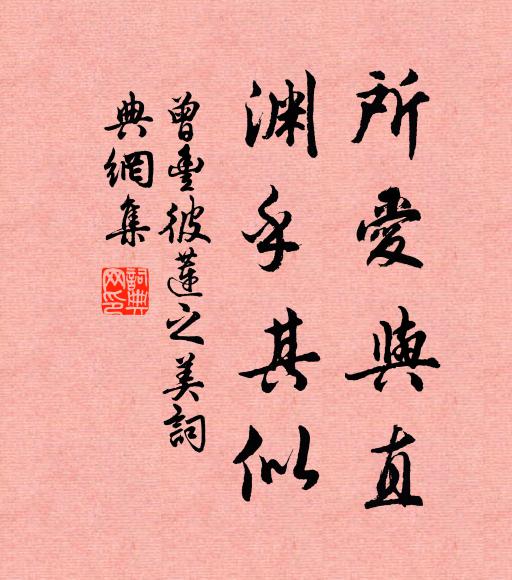 所愛與直
渊乎其似
曾豐彼蓮之美詞
典網集
詞典網印